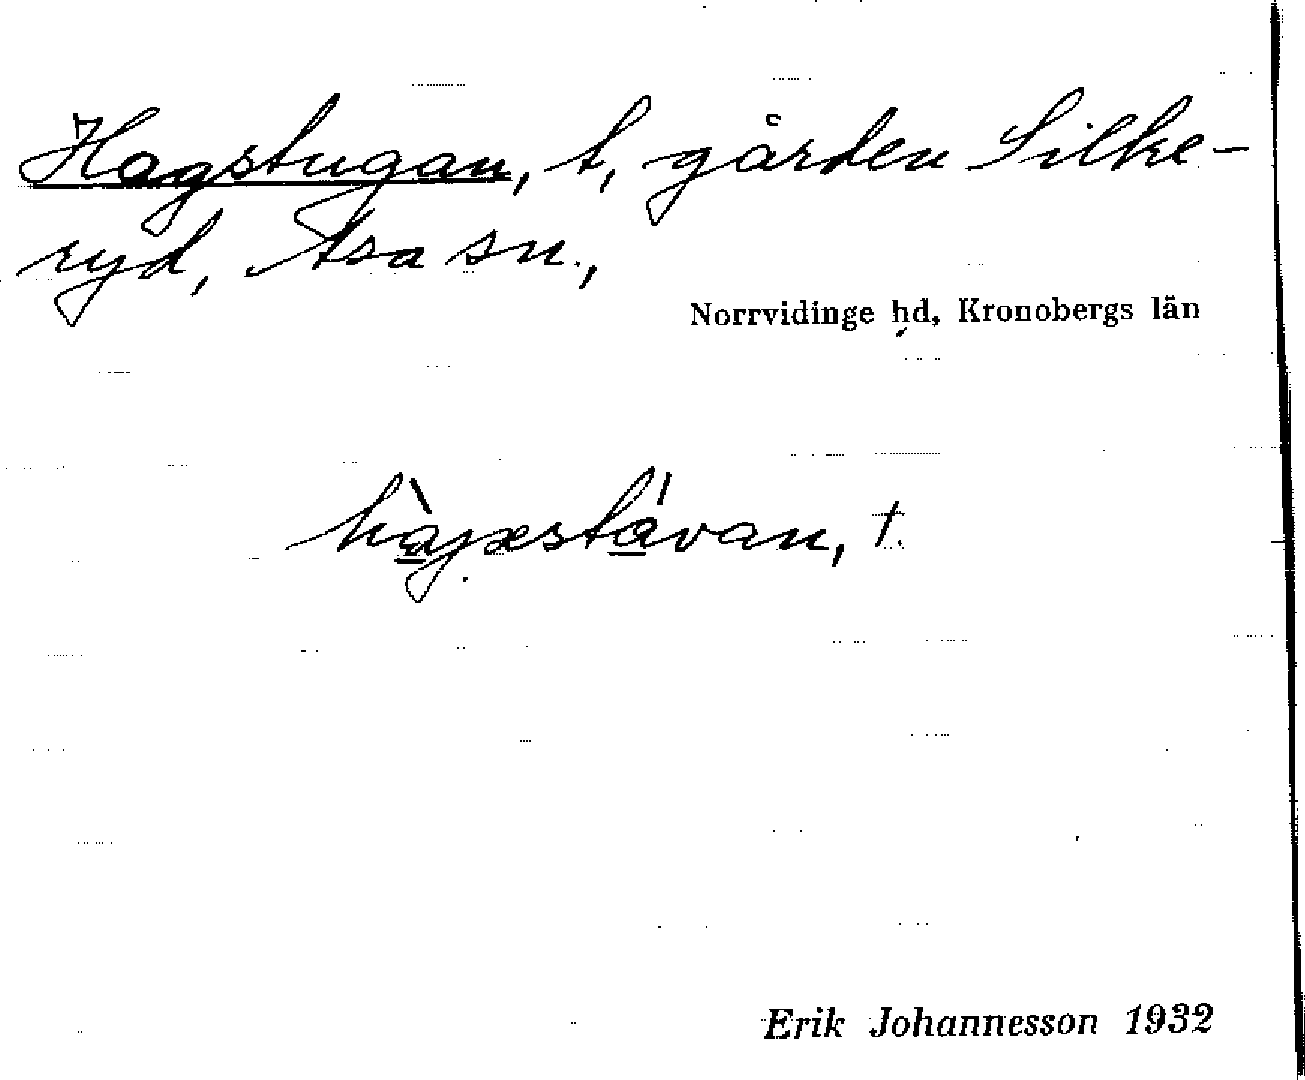 Hagstugan, t, gården Silke-
ryd, Asa sn.,
Norrvidinge hd, Kronobergs län
hàgæstávan, t.
Erik Johannesson 1932